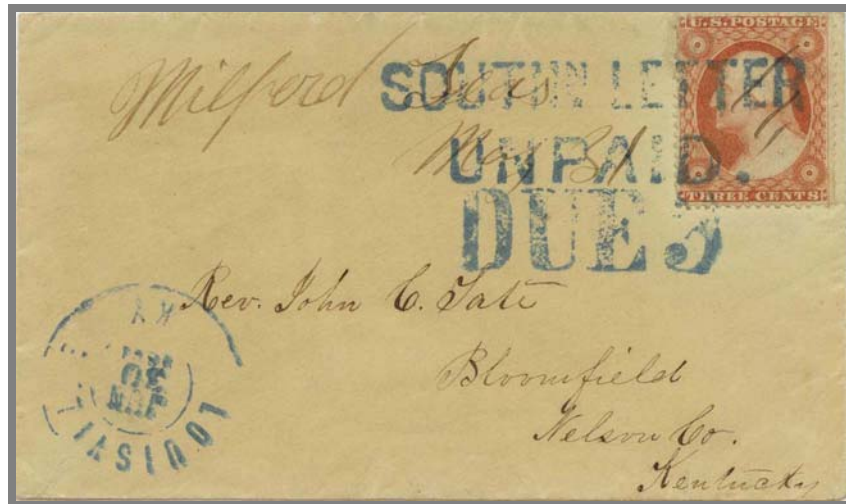 U.S. POSTAGE
Milford Texas
May 31
SOUTHN LETTER
UNPAID.
DUE 3
THREE CENTS
Rev. John C. Tate
Bloomfield
Nelson Co.
Kentucky
LOUISVIL
KY
JUN
30